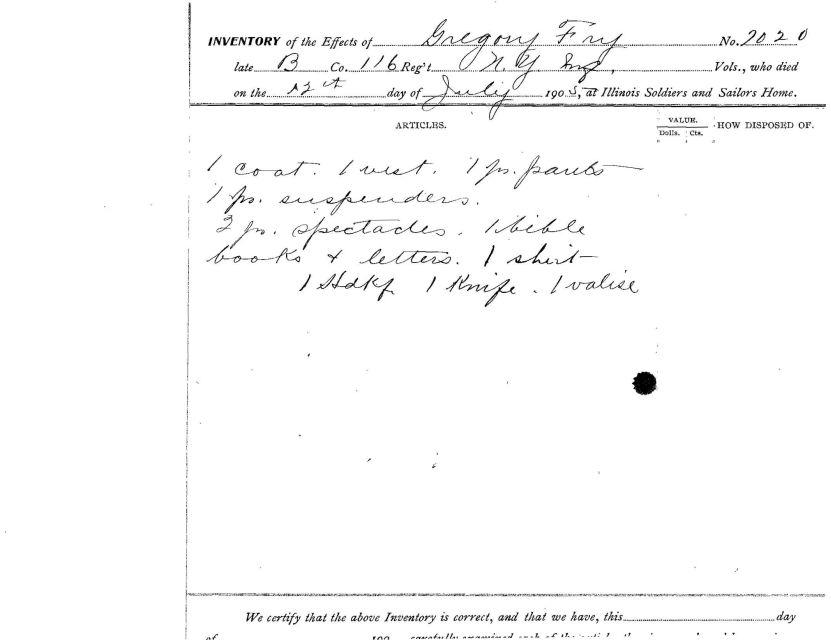 INVENTORY of the Effects of Gregory Fry No. 7020
late B Co. 116 Reg't N.Y. Inf, Vols., who died
on the 12th day of July 1905, at Illinois Soldiers and Sailors Home.
ARTICLES. VALUE. Dolls. Cts. HOW DISPOSED OF.
1 coat. 1 vest. 1 pr. pants
1 pr. suspenders.
2 pr. spectacles. 1 bible
books & letters. 1 shirt
1 Hdkf. 1 Knife. 1 valise
We certify that the above Inventory is correct, and that we have, this day
of 190 carefully examined each of the